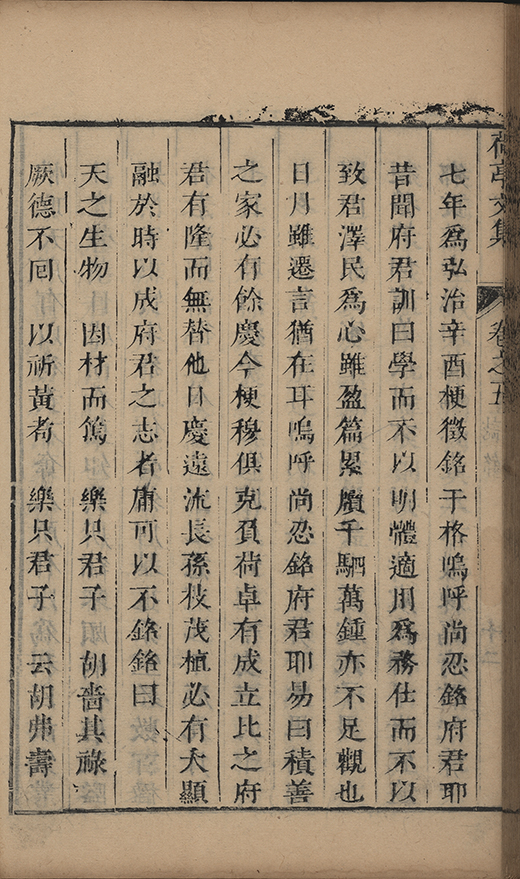 荷亭文集 卷之五 十二
七年為弘治辛酉梗徵銘于格嗚呼尚忍銘府君耶
昔聞府君訓曰學而不以明體適用為務仕而不以
致君澤民為心雖盈篇累牘千駟萬鍾亦不足觀也
日月雖遷言猶在耳嗚呼尚忍銘府君耶易曰積善
之家必有餘慶今梗穆俱克負荷卓有成立比之府
君有隆而無替他日慶遠流長孫枝茂植必有大顯
融於時以成府君之志者庸可以不銘銘曰
天之生物 因材而篤 樂只君子 胡嗇其祿
厥德不回 以祈黃耇 樂只君子 云胡弗壽